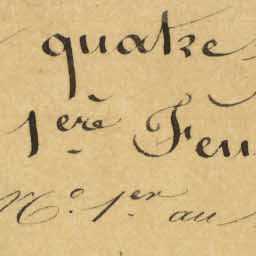 quatre
1ère Feu
No. 1er au